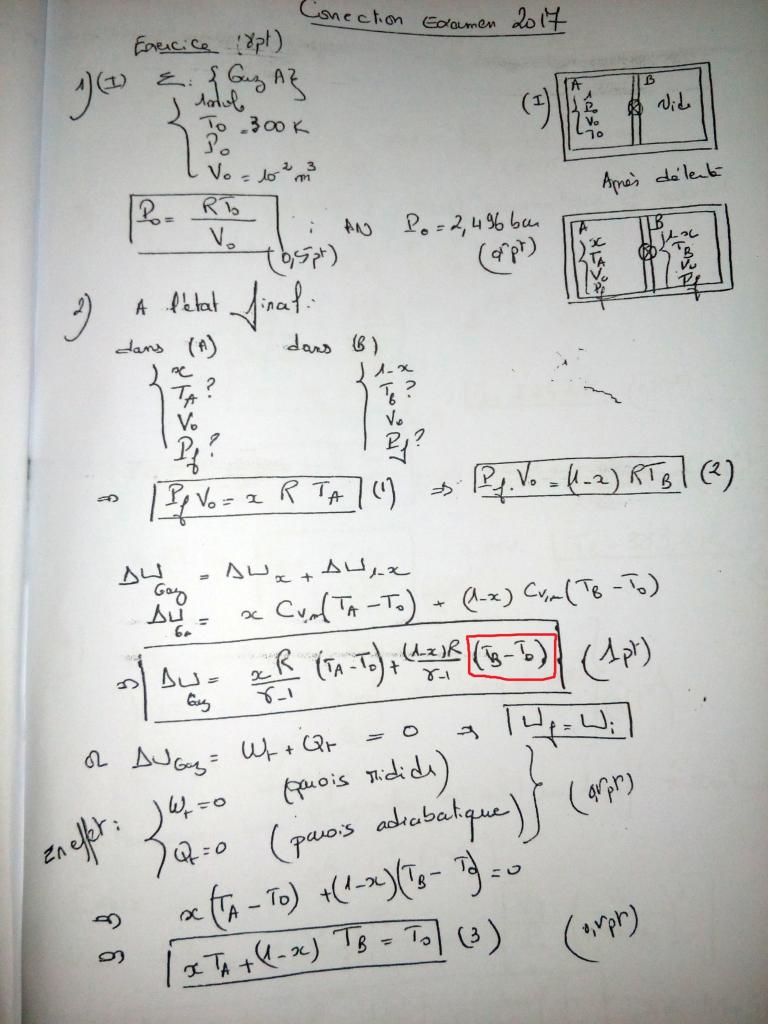 Correction Examen 2017
Exercice (8pt)
1) (I) Σ: {Gaz A}
1mol
T0 = 300 K
P0
V0 = 10^-2 m^3
(I) A B
1
P0
V0
T0
Vide
Après détente
P0 = RT0 / V0 ; AN P0 = 2,496 bar
(0,5pt) (0,5pt)
A B
x 1-x
TA TB
V0 V0
Pf Pf
2) A l'état final:
dans (A) dans (B)
x 1-x
TA? TB?
V0 V0
Pf? Pf?
⇒ Pf V0 = x R TA (1) ⇒ Pf.V0 = (1-x) RTB (2)
ΔU Gaz = ΔUx + ΔU1-x
ΔU Gaz = x Cv,m (TA - T0) + (1-x) Cv,m (TB - T0)
⇒ ΔU Gaz = xR/γ-1 (TA - T0) + (1-x)R/γ-1 (TB - T0) (1pt)
or ΔU Gaz = Wr + Qr = 0 ⇒ Uf = Ui
En effet: Wr = 0 (parois rigides)
Qr = 0 (parois adiabatique) (0,5pt)
⇒ x(TA - T0) + (1-x)(TB - T0) = 0
⇒ xTA + (1-x) TB = T0 (3) (0,5pt)